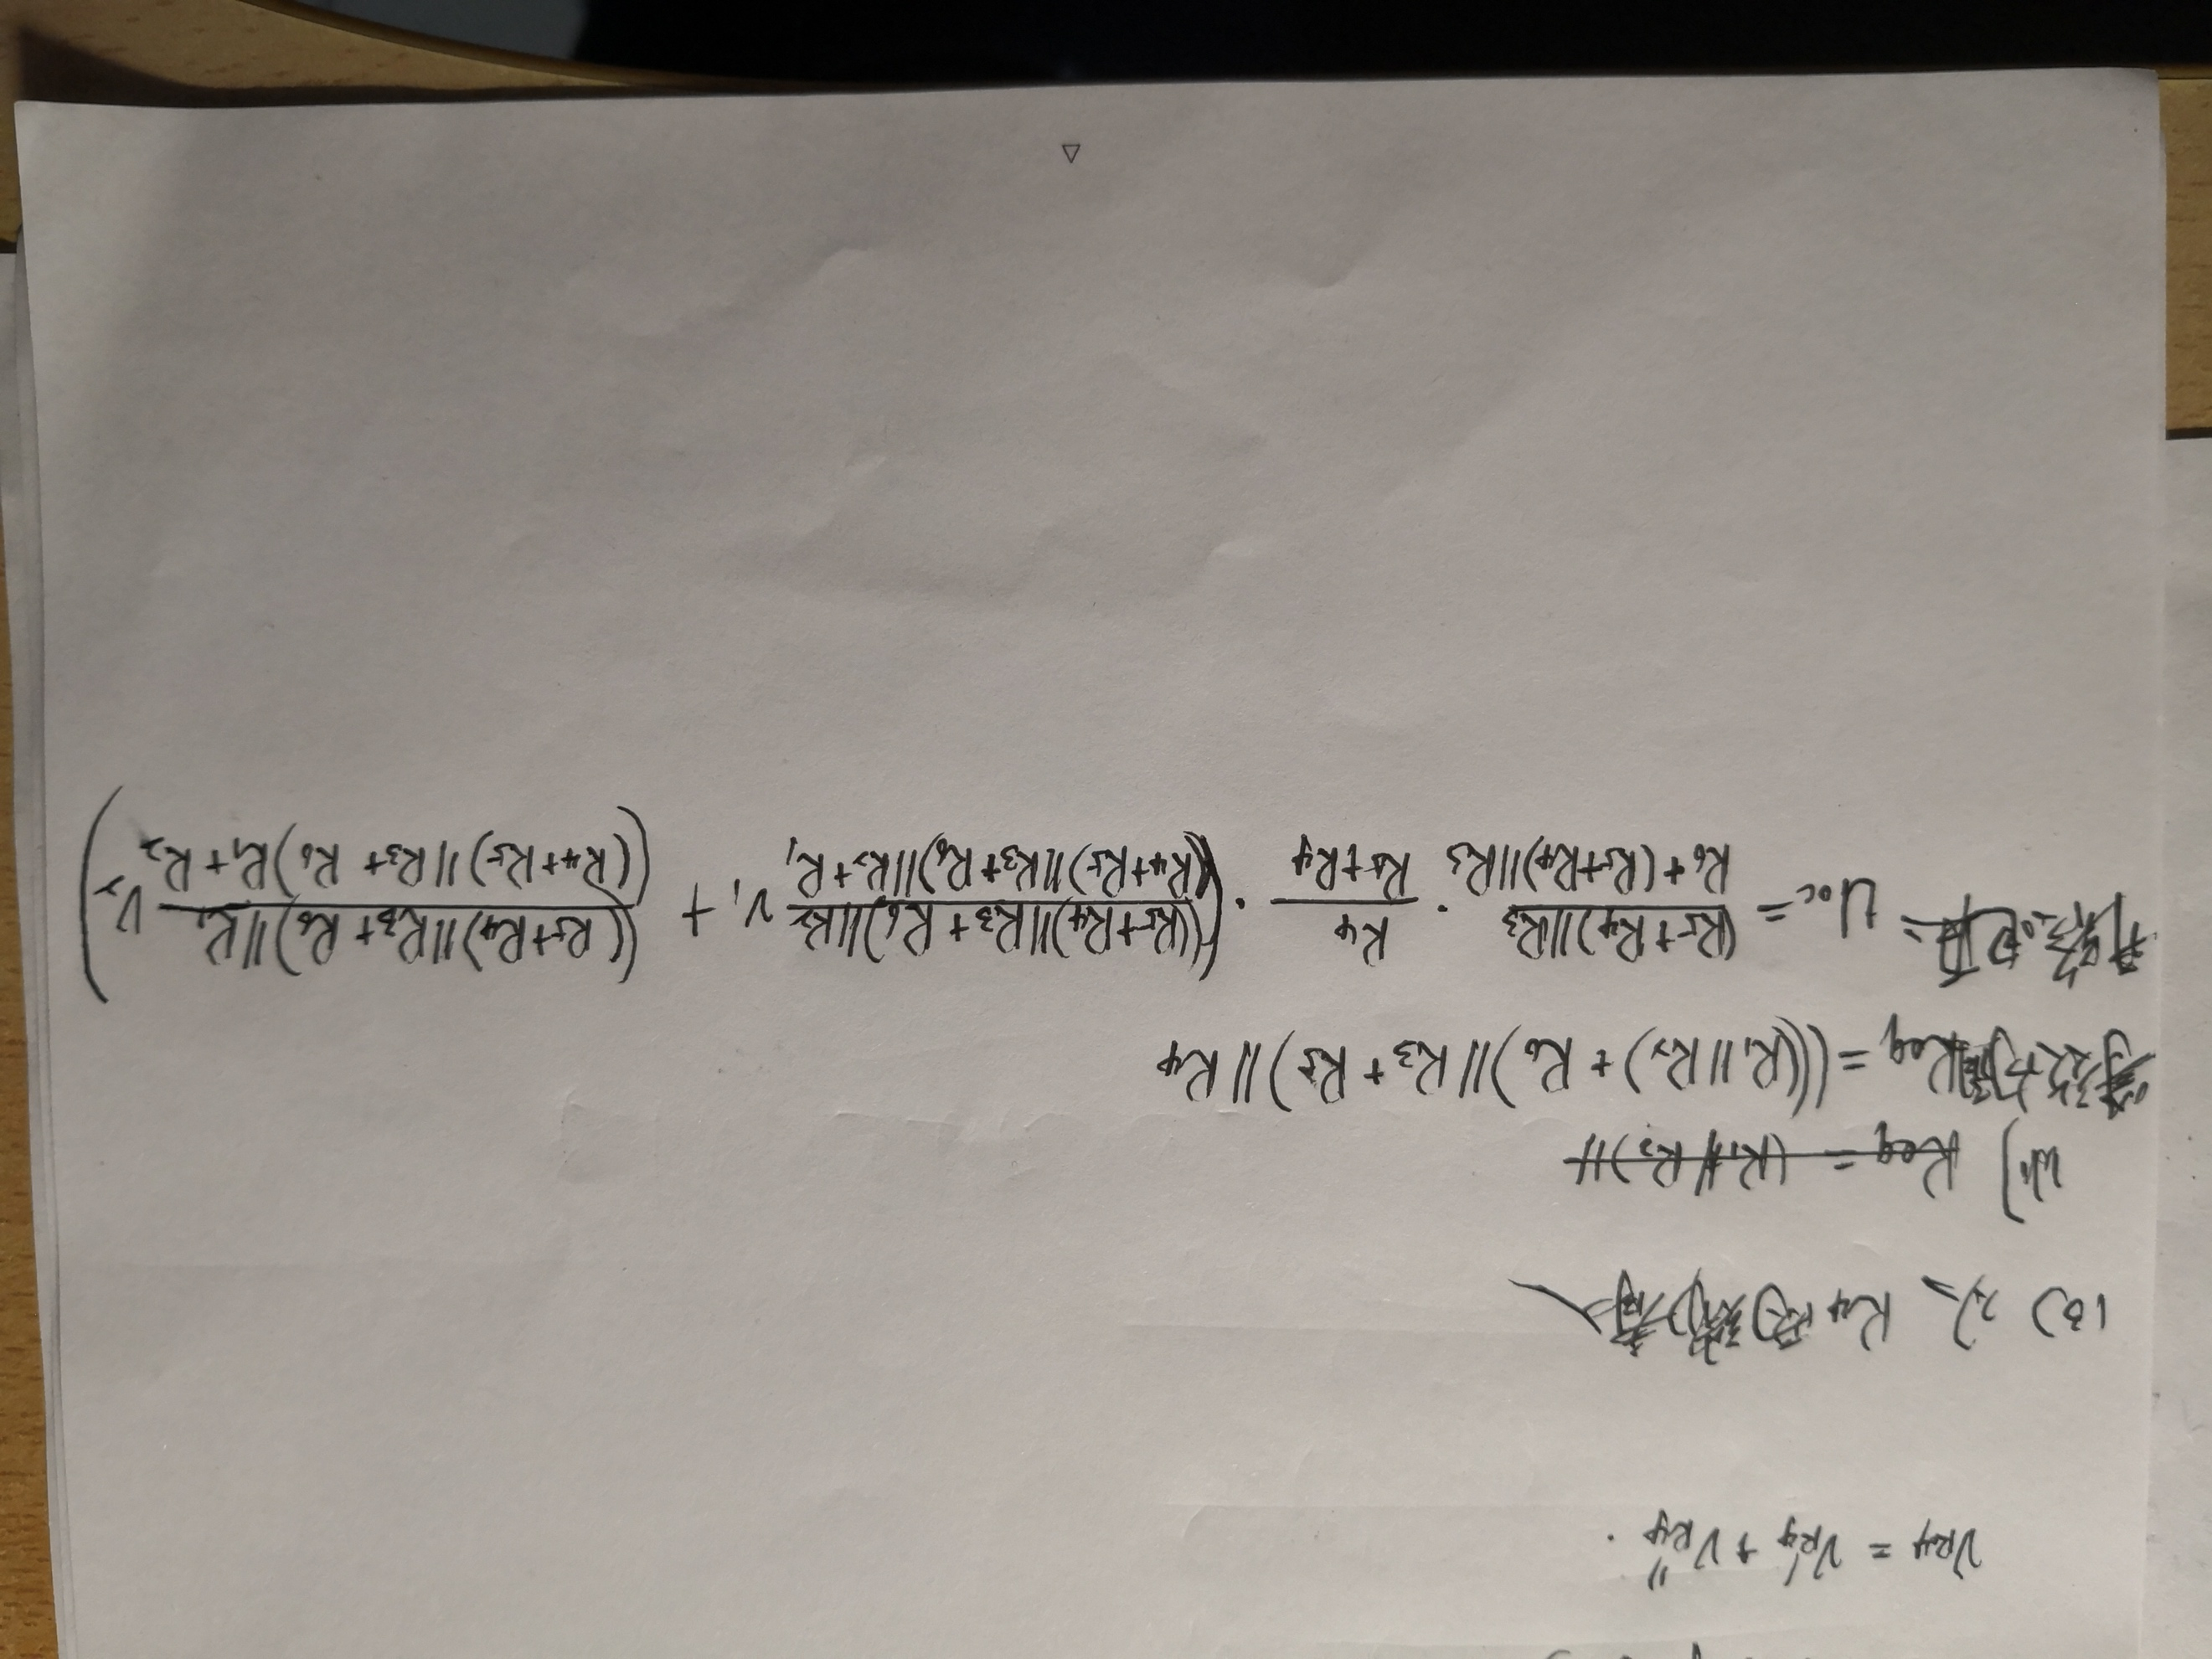 V_R4 = V'_R4 + V''_R4 .
Req = (R1//R2)//
Req = (((R1||R2)+R6)||R3+R5)||R4
Uoc = \frac{(R5+R4)||R3}{R6+(R5+R4)||R3} · \frac{R4}{R5+R4} · (\frac{((R5+R4)||R3+R6)||R2}{((R4+R5)||R3+R6)||R2+R1} V1 + \frac{((R5+R4)||R3+R6)||R1}{((R4+R5)||R3+R6)R1+R2} V2)